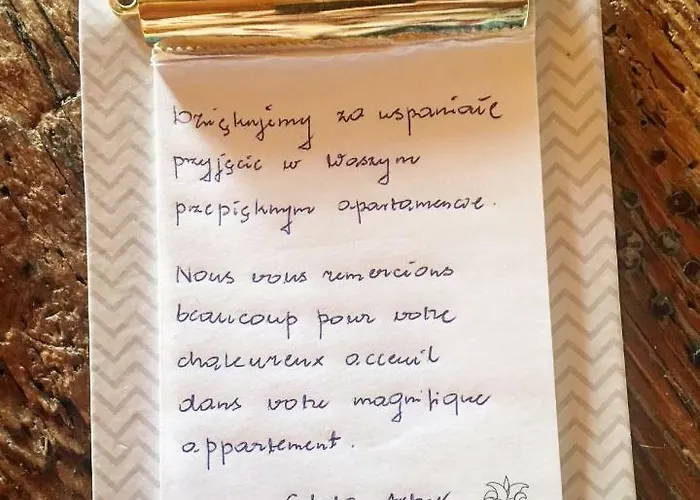 Dziękujemy za wspaniałe
przyjęcie w Waszym
przepięknym apartamencie.
Nous vous remercions
beaucoup pour votre
chaleureux acceuil
dans votre magnifique
appartement.